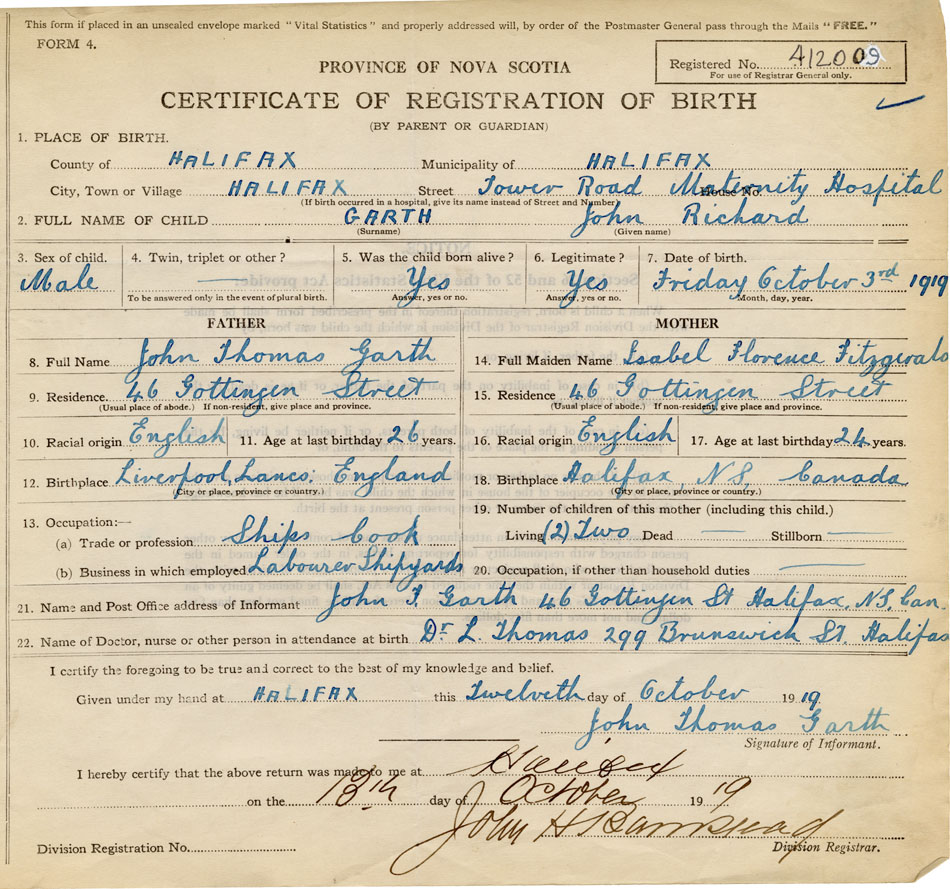 This form if placed in an unsealed envelope marked "Vital Statistics" and properly addressed will, by order of the Postmaster General pass through the Mails "FREE."
FORM 4.
Registered No. 412009
For use of Registrar General only.
PROVINCE OF NOVA SCOTIA
CERTIFICATE OF REGISTRATION OF BIRTH
(BY PARENT OR GUARDIAN)
1. PLACE OF BIRTH.
County of HALIFAX Municipality of HALIFAX
City, Town or Village HALIFAX Street Tower Road House No. Maternity Hospital
(If birth occurred in a hospital, give its name instead of Street and Number)
2. FULL NAME OF CHILD GARTH John Richard
(Surname) (Given name)
3. Sex of child. 4. Twin, triplet or other? 5. Was the child born alive? 6. Legitimate? 7. Date of birth.
Male — Yes Yes Friday October 3rd 1919
To be answered only in the event of plural birth. Answer, yes or no. Answer, yes or no. Month, day, year.
FATHER MOTHER
8. Full Name John Thomas Garth 14. Full Maiden Name Isabel Florence Fitzgerald
9. Residence. 46 Gottingen Street 15. Residence 46 Gottingen Street
(Usual place of abode.) If non-resident, give place and province. (Usual place of abode.) If non-resident, give place and province.
10. Racial origin English 11. Age at last birthday 26 years. 16. Racial origin English 17. Age at last birthday 24 years.
12. Birthplace Liverpool, Lancs: England 18. Birthplace Halifax, N.S, Canada
(City or place, province or country.) (City or place, province or country.)
13. Occupation:— 19. Number of children of this mother (including this child.)
(a) Trade or profession Ships Cook Living (2) Two Dead — Stillborn —
(b) Business in which employed Labourer Shipyards 20. Occupation, if other than household duties —
21. Name and Post Office address of Informant John T. Garth 46 Gottingen St Halifax, N.S, Can.
22. Name of Doctor, nurse or other person in attendance at birth Dr L. Thomas 299 Brunswick St. Halifax
I certify the foregoing to be true and correct to the best of my knowledge and belief.
Given under my hand at HALIFAX this Twelveth day of October 1919
John Thomas Garth
Signature of Informant.
I hereby certify that the above return was made to me at Halifax
on the 13th day of October 1919
John H Barnstead
Division Registration No. Division Registrar.